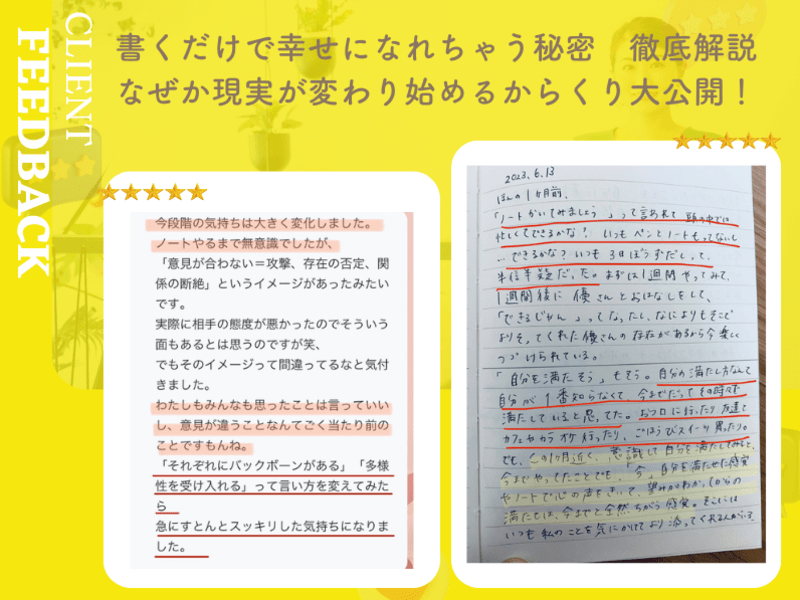 CLIENT
FEEDBACK
書くだけで幸せになれちゃう秘密　徹底解説
なぜか現実が変わり始めるからくり大公開！
今段階の気持ちは大きく変化しました。
ノートやるまで無意識でしたが、
「意見が合わない＝攻撃、存在の否定、関
係の断絶」というイメージがあったみたい
です。
実際に相手の態度が悪かったのでそういう
面もあるとは思うのですが笑、
でもそのイメージって間違ってるなと気付
きました。
わたしもみんなも思ったことは言っていい
し、意見が違うことなんてごく当たり前の
ことですもんね。
「それぞれにバックボーンがある」「多様
性を受け入れる」って言い方を変えてみた
ら
急にすとんとスッキリした気持ちになりま
した。
2023.6.13
ほんの1ヶ月前、
「ノートかいてみましょう」って言われて 頭の中では
忙しくてできるかな？ いつもペンとノートもってないし
…できるかな？いつも3日ぼうずだし、って、
半信半疑だった。まずは1週間やってみて、
1週間後に優さんとおはなしをして、
「できるじゃん」ってなったし、なによりもそこで
よりそってくれた優さんの存在があるから今楽しく
つづけられている。
「自分を満たそう」もそう。自分の満たし方なんて
自分が1番知らなくて、今までだってその時々で
満たしていると思ってた。お風呂に行ったり友達と
カフェやカラオケ行ったり、ごほうびスイーツ買ったり。
でも、この1ヶ月近く、意識して自分を満たしてみると、
今までやってたことでも、「今」自分を満たせた感覚
やノートで心の声をきいて、望みがわかってからの
満たしは、今までと全然ちがう感覚。そこには
いつも私のことを気にかけてより添ってくれる